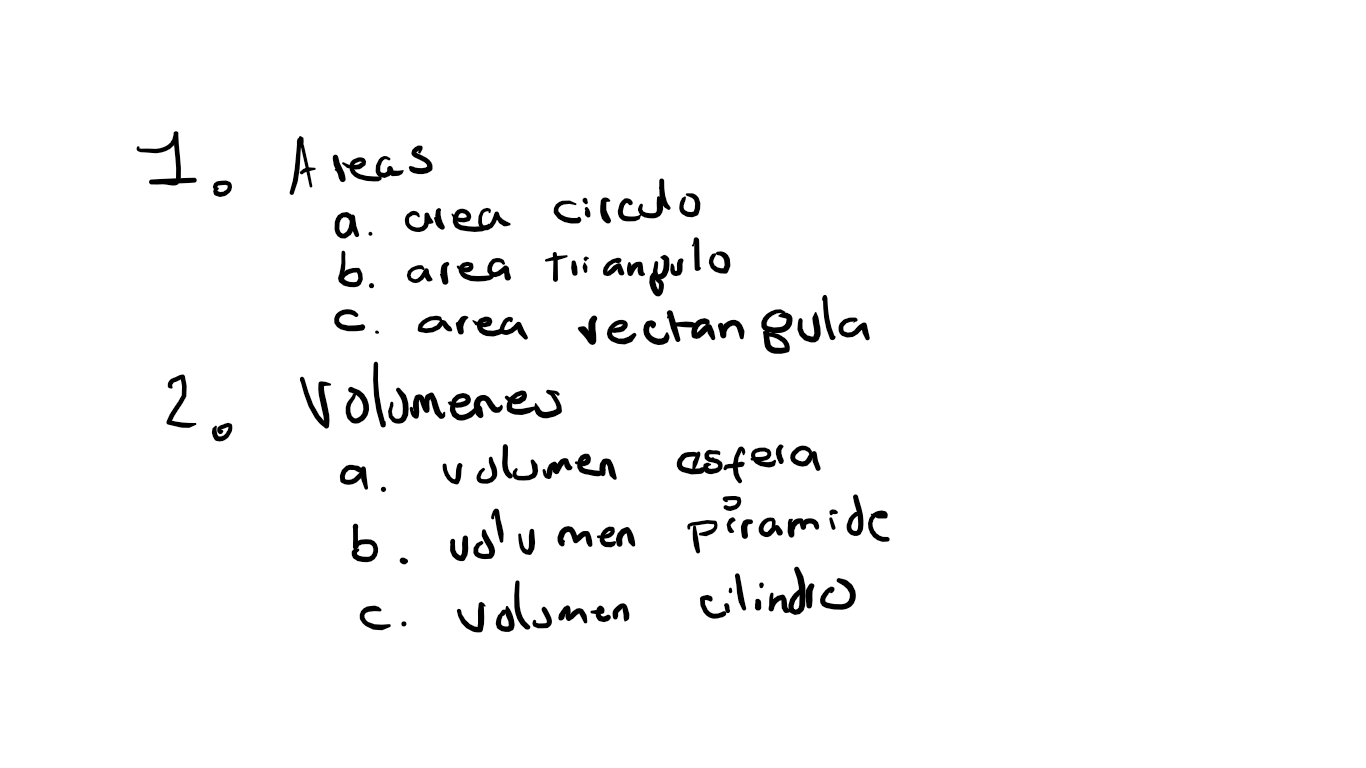 1. Areas
a. area circulo
b. area triangulo
c. area rectangula
2. Volumenes
a. volumen esfera
b. volumen piramide
c. volumen cilindro